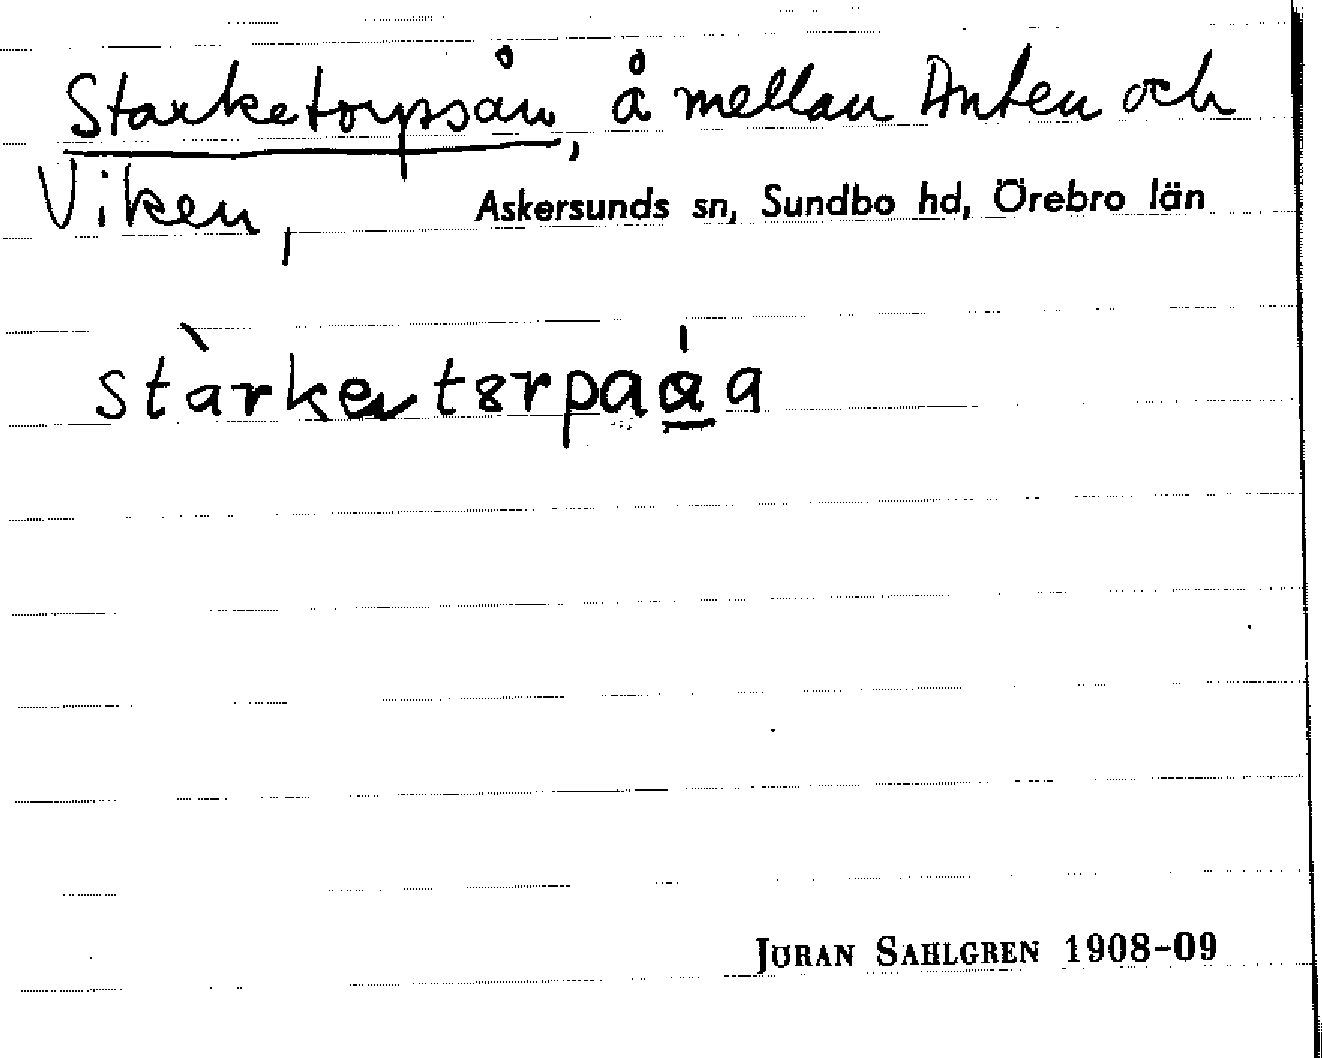 Starketorpsån, å mellan Anten och
Viken, Askersunds sn, Sundbo hd, Örebro län
stàrke tɤrpaáa
JÖRAN SAHLGREN 1908-09